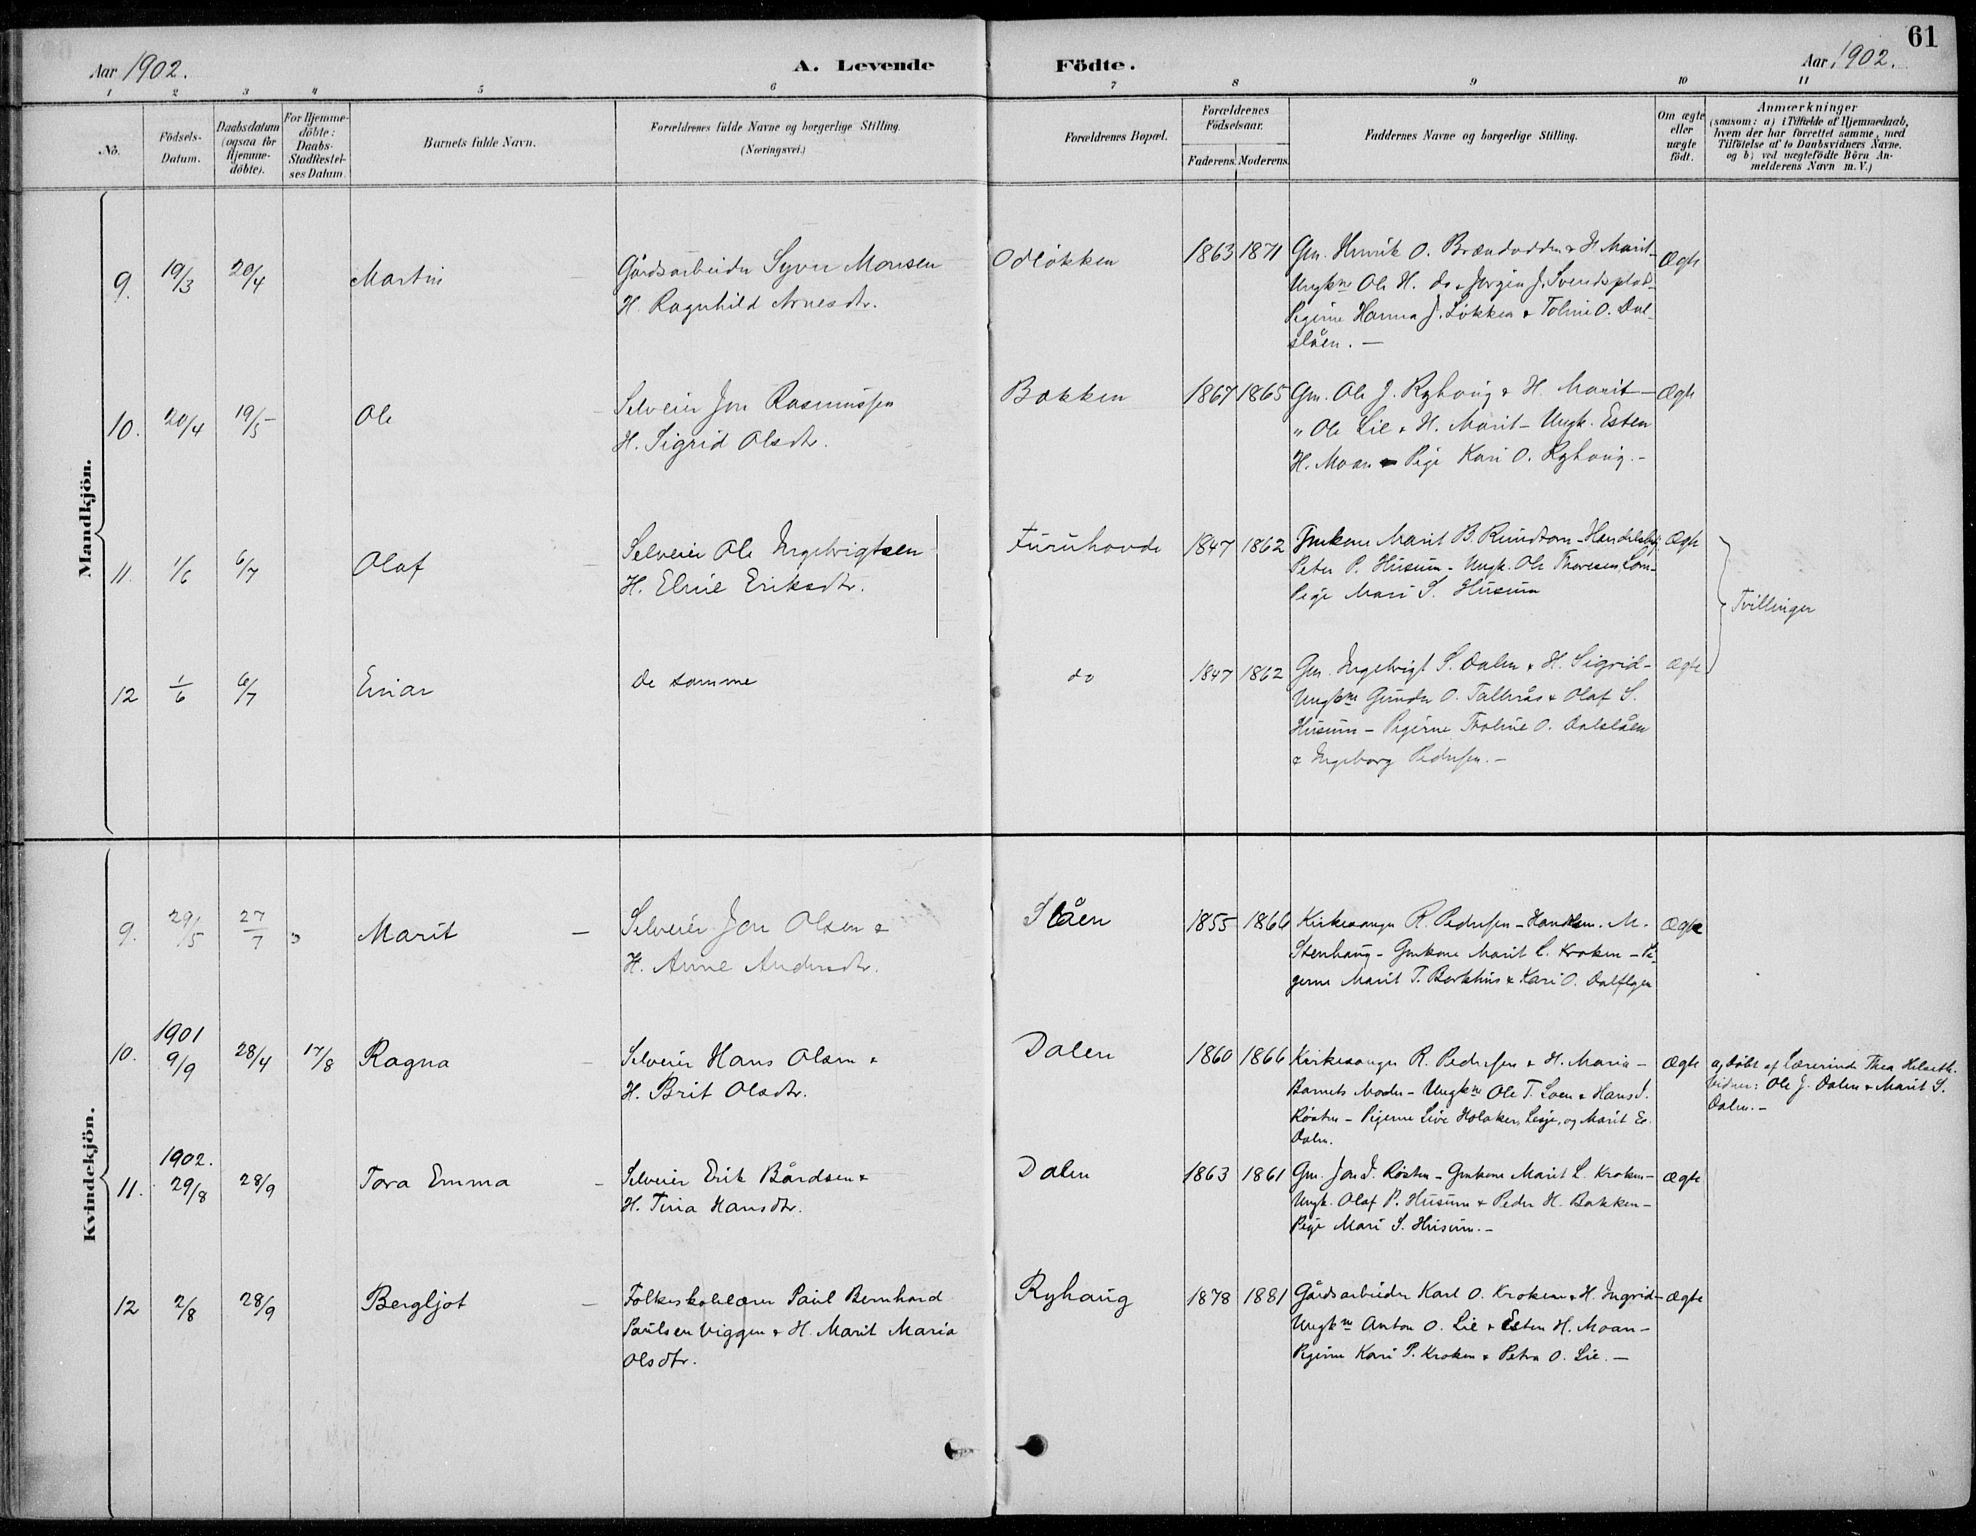 61
Aar 1902.
A. Levende Födte.
Aar 1902.
1 2 3 4 5 6 7 8 9 10 11
No.
Födsels-
Datum.
Daabsdatum
(ogsaa for
Hjemme-
döbte).
For Hjemme-
döbte:
Daabs-
Stadfæstel-
ses Datum.
Barnets fulde Navn.
Forældrenes fulde Navne og borgerlige Stilling.
(Næringsvei.)
Forældrenes Bopæl.
Forældrenes
Födselsaar.
Faderens. Moderens.
Faddernes Navne og borgerlige Stilling.
Om ægte
eller
uægte
födt.
Anmærkninger
(saasom: a) i Tilfælde af Hjemmedaab,
hvem der har forrettet samme, med
Tilföielse af to Daabsvidners Navne,
og b) ved uægtefödte Börn An-
melderens Navn m. V.)
Mandkjön.
9. 19/3 20/4 Martin
Gårdsarbeider Syver Monsen
H. Ragnhild Arnesdtr.
Odløkken 1863 1871
Gm. Henrik O. Brændvodden & H. Marit-
Ungkne Ole H. do & Jørgen J. Svendsplad-
Pigerne Hanna J. Løkken & Toline O. Dal-
slåen. —
Ægte
10. 20/4 19/5 Ole
Selveier Jon Rasmussen
H. Sigrid Olsdtr.
Bakken 1867 1865
Gm. Ole J. Ryhaug & H. Marit —
" Ole Lie & H. Marit - Ungk. Esten
H. Moan - Pige Kari O. Ryhaug. -
Ægte
11. 1/6 6/7 Olaf
Selveier Ole Ingebrigtsen
H. Eline Eriksdtr.
Furuhovde 1847 1862
Gmkone Marit B. Rundtom - Handelsbj.
Peter P. Husum - Ungk. Ole Thoresen, Lom -
Pige Mari S. Husum
Ægte
Tvillinger
12 1/6 6/7 Einar
De samme
do 1847 1862
Gm. Ingebrigt S. Dalen & H. Sigrid -
Ungkne Gunder O. Tallerås & Olaf S.
Husum - Pigerne Tholine O. Dalslåen
& Ingeborg Pedersen. -
Ægte
Kvindekjön.
9. 29/5 27/7 Marit —
Selveier Jon Olsen &
H. Anne Andersdtr.
Slåen 1855 1866
Kirkesanger R. Pedersen - Handelsm. M.
Stenhaug - Gmkone Marit L. Kroken - Pi-
gerne Marit T. Bakkhus & Kari O.
Ægte
10. 1901 9/9 28/4 17/8 Ragna
Selveier Hans Olsen &
H. Brit Olsdtr.
Dalen 1860 1866
Kirkesanger R. Pedersen & H. Maria -
Barnets Moder - Ungkne Ole T. Loen & Hans J.
Røsten - Pigerne Live Holaker, Lesje, og Marit E.
Dalen.
Ægte
a, døbt af Lærerinde Thea Helseth.
Vidner: Ole J. Dalen & Marit S.
Dalen. -
11. 1902. 29/8 28/9 Tora Emma —
Selveier Erik Bårdsen &
H. Tina Hansdtr.
Dalen 1863 1861
Gm. Jon J. Røsten - Gmkone Marit L. Kroken -
Ungk. Olaf P. Husum & Peder H. Bakken -
Pige Mari S. Husum. -
Ægte
12 2/8 28/9 Bergljot —
Folkeskolelærer Paul Bernhard
Paulsen Viggen & H. Marit Maria
Olsdtr.
Ryhaug 1878 1881
Gårdsarbeider Karl O. Kroken & H. Ingrid -
Ungkne Anton O. Lie & Esten H. Moan -
Pigerne Kari P. Kroken & Petra O. Lie. —
Ægte